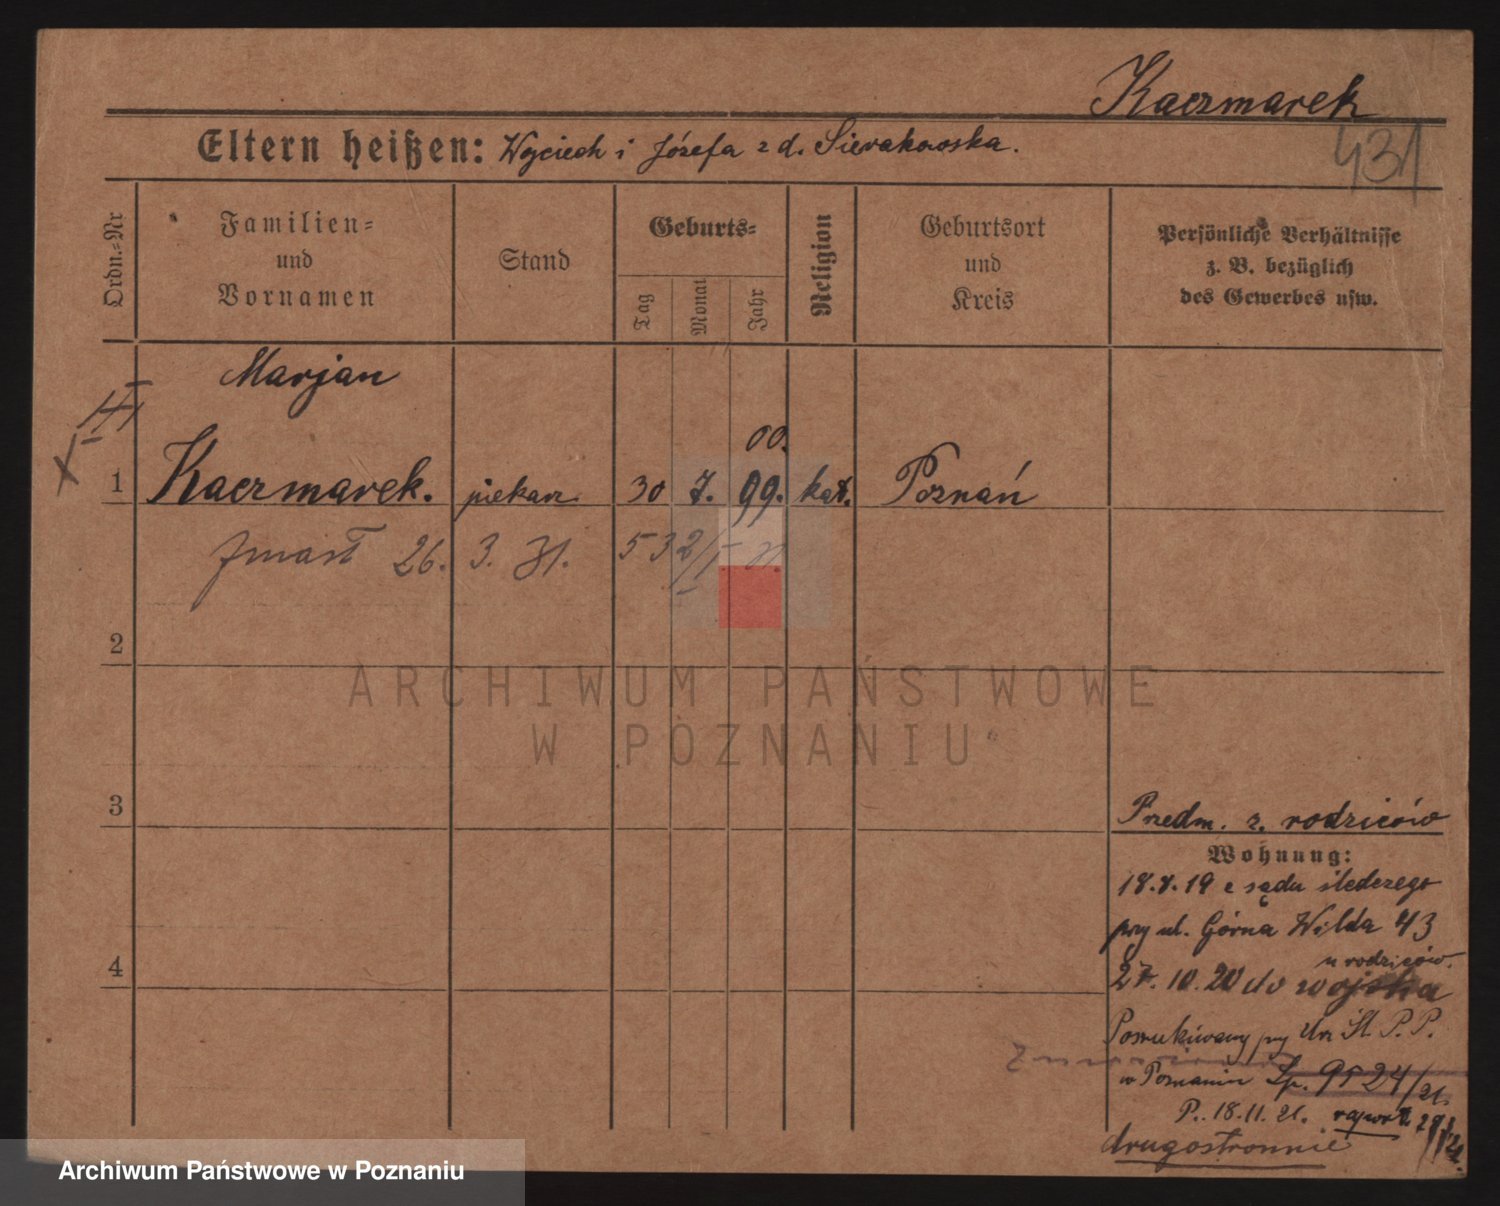 Kaczmarek
431
Eltern heißen: Wojciech i Józefa z d. Sierakowska.
Ordn.=Nr
Familien=
und
Vornamen
Stand
Geburts=
Tag
Monat
Jahr
Religion
Geburtsort
und
Kreis
Persönliche Verhältnisse
z. B. bezüglich
des Gewerbes usw.
Marjan
00.
1 Kaczmarek. piekarz 30 7. 99. kat. Poznań
zmarł 26. 3. 31. 532/I 31
2
ARCHIWUM PAŃSTWOWE
W POZNANIU
3
Przedm. z. rodziców
Wohnung:
18.8.19 z sądu śledczego
przy ul. Górna Wilda 43
u rodziców.
4
27. 10. 20 do wojska
Poszukiwany prz Urz Śl. P. P.
w Poznaniu Lp. 9524/21.
P. 18.11.21.
drugostronnie
Archiwum Państwowe w Poznaniu